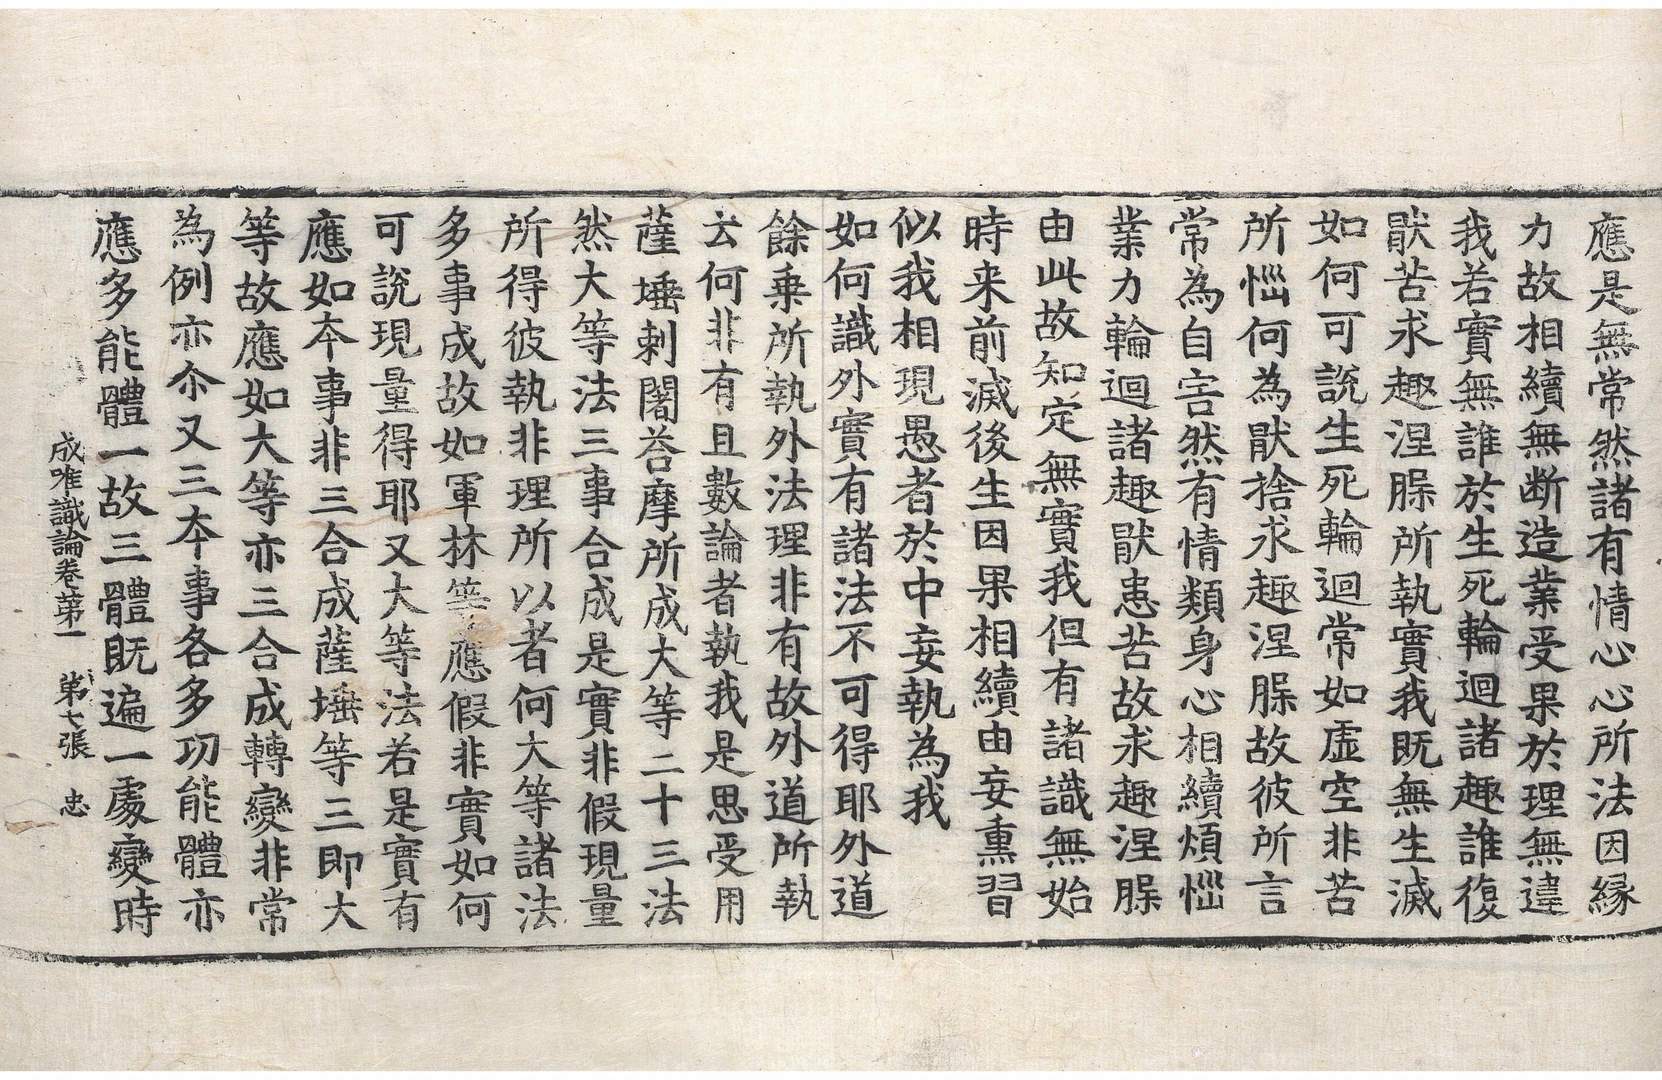 應是無常然諸有情心心所法因縁
力故相續無断造業受果於理無違
我若實無誰於生死輪迴諸趣誰復
猒苦求趣涅槃所執實我既無生滅
如何可說生死輪迴常如虛空非苦
所惱何為猒捨求趣涅槃故彼所言
常為自害然有情類身心相續煩惱
業力輪迴諸趣猒患苦故求趣涅槃
由此故知定無實我但有諸識無始
時来前滅後生因果相續由妄熏習
似我相現愚者於中妄執為我
如何識外實有諸法不可得耶外道
餘乗所執外法理非有故外道所執
云何非有且數論者執我是思受用
薩埵剌闍荅摩所成大等二十三法
然大等法三事合成是實非假現量
所得彼執非理所以者何大等諸法
多事成故如軍林等應假非實如何
可說現量得耶又大等法若是實有
應如夲事非三合成薩埵等三即大
等故應如大等亦三合成轉變非常
為例亦尒又三夲事各多功能體亦
應多能體一故三體既遍一處變時
成唯識論卷第一 第七張 忠